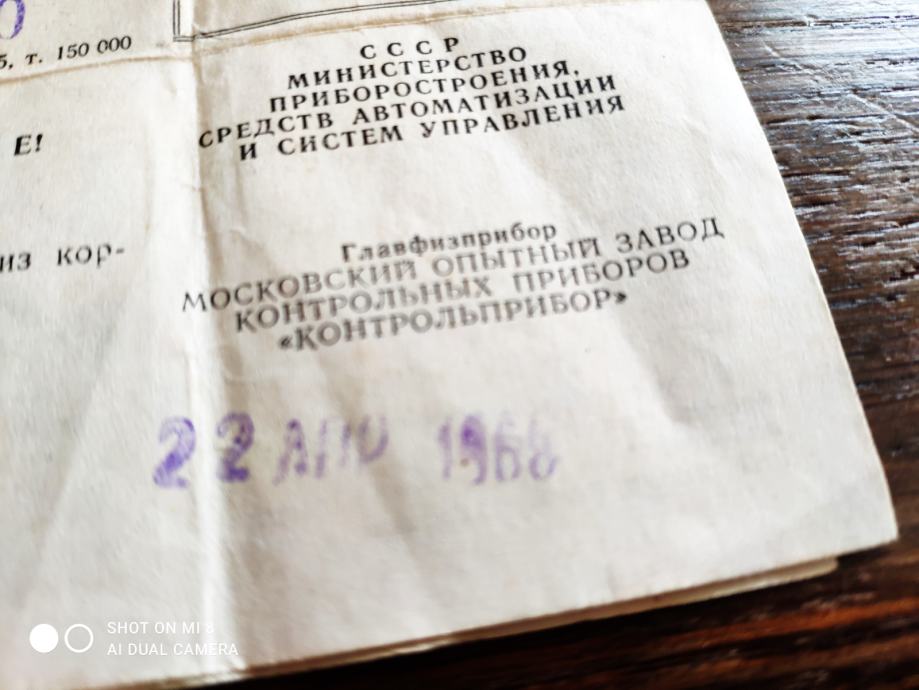 5, т. 150 000
СССР
МИНИСТЕРСТВО
ПРИБОРОСТРОЕНИЯ,
СРЕДСТВ АВТОМАТИЗАЦИИ
И СИСТЕМ УПРАВЛЕНИЯ
Е!
из кор-
Главфизприбор
МОСКОВСКИЙ ОПЫТНЫЙ ЗАВОД
КОНТРОЛЬНЫХ ПРИБОРОВ
«КОНТРОЛЬПРИБОР»
22 АПР 1968
SHOT ON MI 8
AI DUAL CAMERA